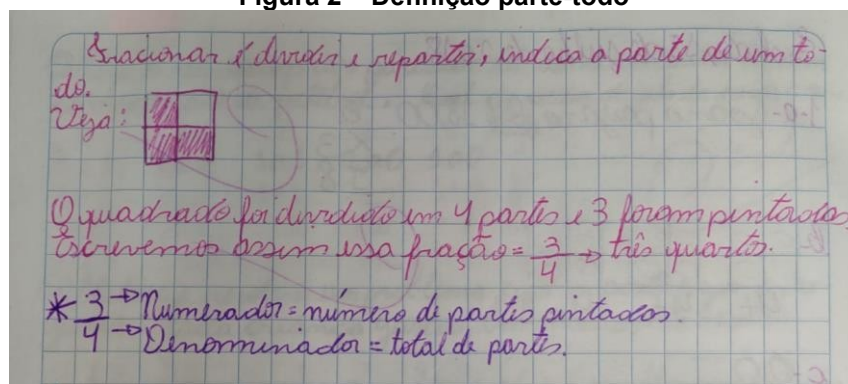 Figura 2 – Definição parte-todo
Fracionar é dividir e repartir, indica a parte de um to-
do.
Veja:
O quadrado foi dividido em 4 partes e 3 foram pintadas.
Escrevemos assim essa fração = 3/4 → três quartos.
* 3 → Numerador = número de partes pintadas.
4 → Denominador = total de partes.